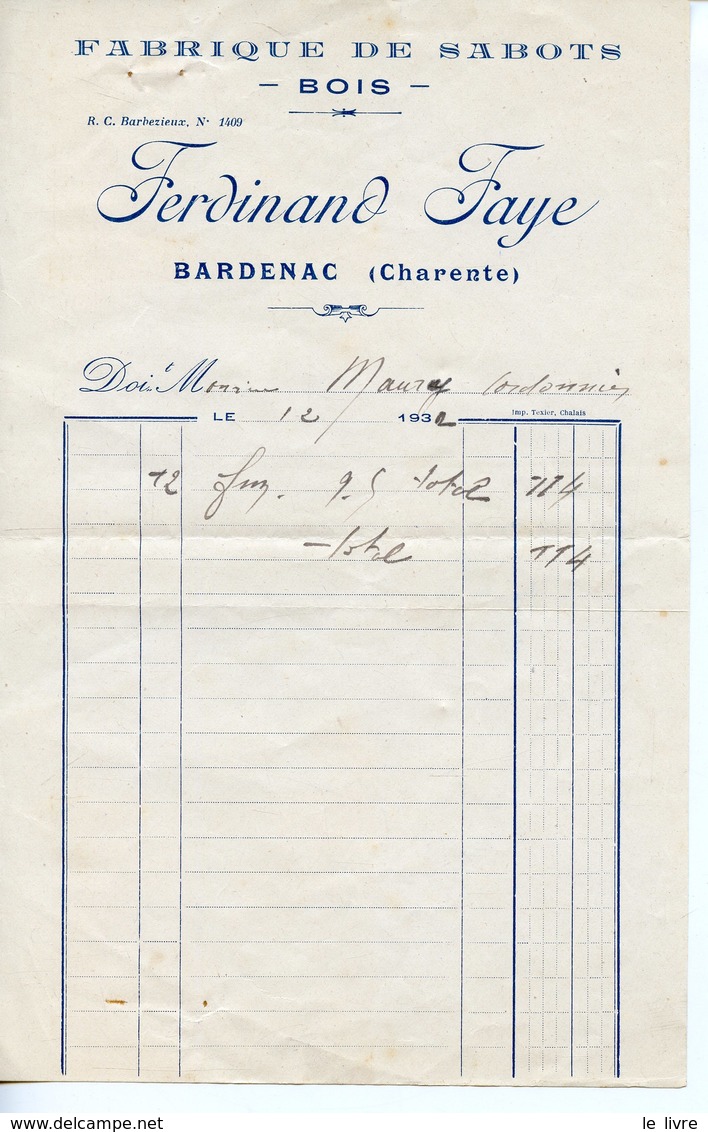 FABRIQUE DE SABOTS
- BOIS -
R. C. Barbezieux, N° 1409
Ferdinand Faye
BARDENAC (Charente)
Doit Monsieur Maury Cordonnier
LE 12 1932
Imp. Texier, Chalais
12 9.5 total 114
total 114
le livre